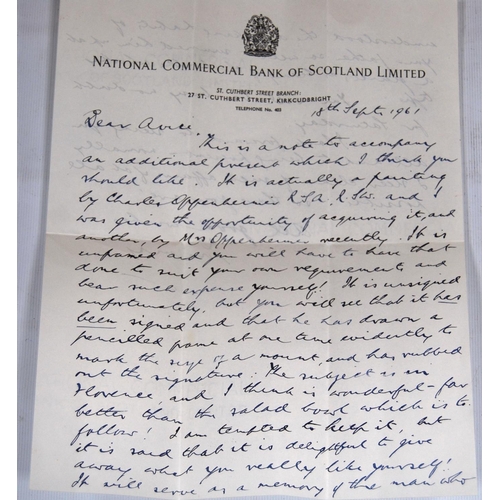 NATIONAL COMMERCIAL BANK OF SCOTLAND LIMITED
ST. CUTHBERT STREET BRANCH:
27 ST. CUTHBERT STREET, KIRKCUDBRIGHT
TELEPHONE No. 403
18th Sept. 1961
Dear Avice,
This is a note to accompany
an additional present which I think you
should like. It is actually a painting
by Charles Oppenheimer R.S.A. R.S.W. and I
was given the opportunity of acquiring it, and
another, by Mrs Oppenheimer recently. It is
unframed and you will have to have that
done to suit your own requirements and
bear such expense yourself! It is unsigned
unfortunately, but you will see that it has
been signed and that he has drawn a
pencilled frame at one time evidently to
mark the size of a mount, and has rubbed
out the signature. The subject is in
Florence, and I think is wonderful - far
better than the salad bowl which is to
follow! I am tempted to keep it, but
it is said that it is delightful to give
away what you really like yourself!
It will serve as a memory of the man who